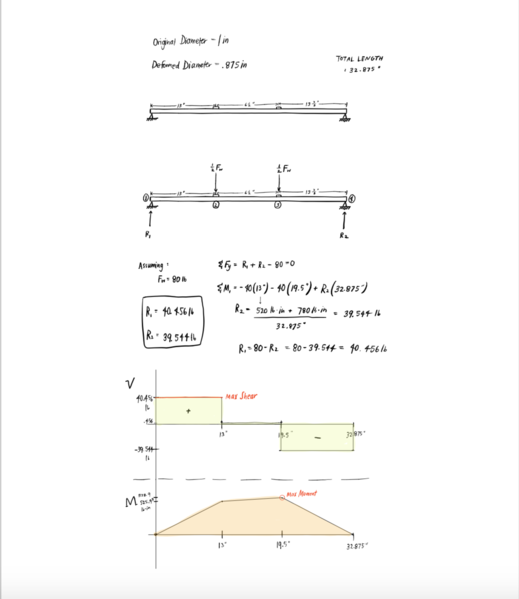 Original Diameter - 1in
Deformed Diameter - .875in
TOTAL LENGTH
: 32.875"
13"
6½"
½Fw ½Fw
13"
6½"
① ② ③ ④
R₁ R₂
Assuming:
Fw = 80 lb
R₁ = 40.456 lb
R₂ = 39.544 lb
ΣFy = R₁ + R₂ - 80 = 0
ΣM₁ = -40(13") - 40(19.5") + R₂(32.875")
R₂ = 520 lb·in + 780 lb·in / 32.875" = 39.544 lb
R₁ = 80 - R₂ = 80 - 39.544 = 40.456 lb
V
40.456 lb
Max Shear
+
13" 19.5" 32.875"
-
-39.544 lb
M
Max Moment
13" 19.5" 32.875"